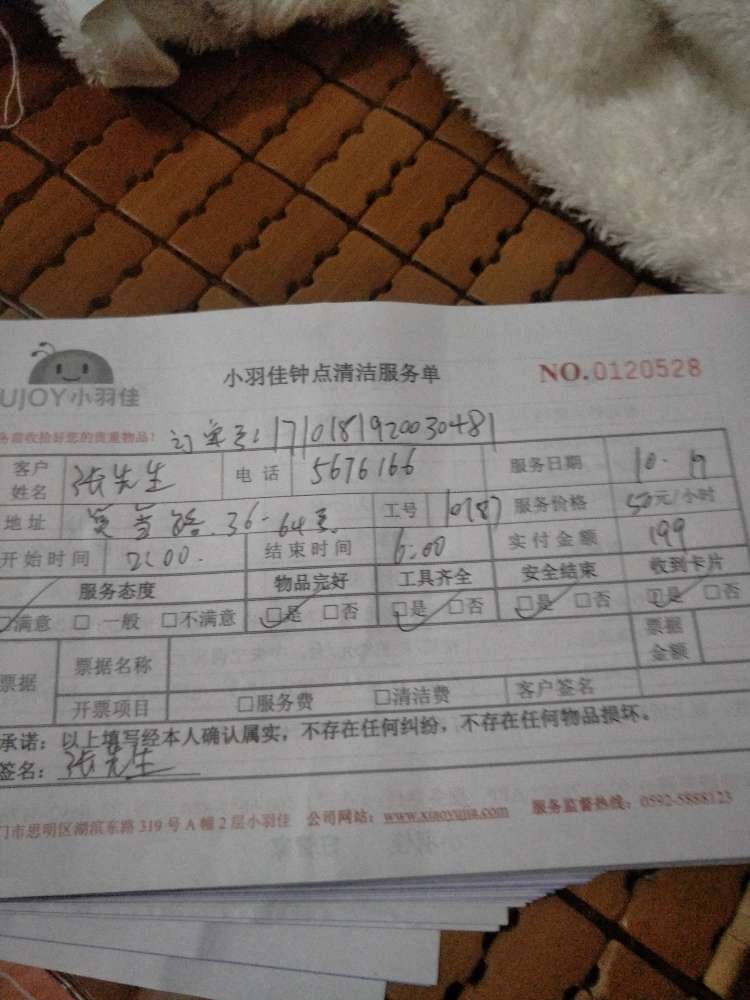 小羽佳钟点清洁服务单 NO.0120528
UJOY小羽佳
务前收拾好您的贵重物品! 订单号: 1710181920030481
客户姓名 张先生 电话 5676166 服务日期 10.19
地址 36-64 工号 10787 服务价格 50元/小时
开始时间 2:00. 结束时间 6:00 实付金额 199
服务态度 物品完好 工具齐全 安全结束 收到卡片
满意 □ 一般 □不满意 □是 □否 □是 □否 □是 □否 □是 □否
票据 票据名称 票据金额
开票项目 □服务费 □清洁费 客户签名
承诺：以上填写经本人确认属实，不存在任何纠纷，不存在任何物品损坏。
签名：张先生
门市思明区湖滨东路 319 号 A 幢 2 层小羽佳 公司网站：www.xiaoyujia.com 服务监督热线：0592-5888123